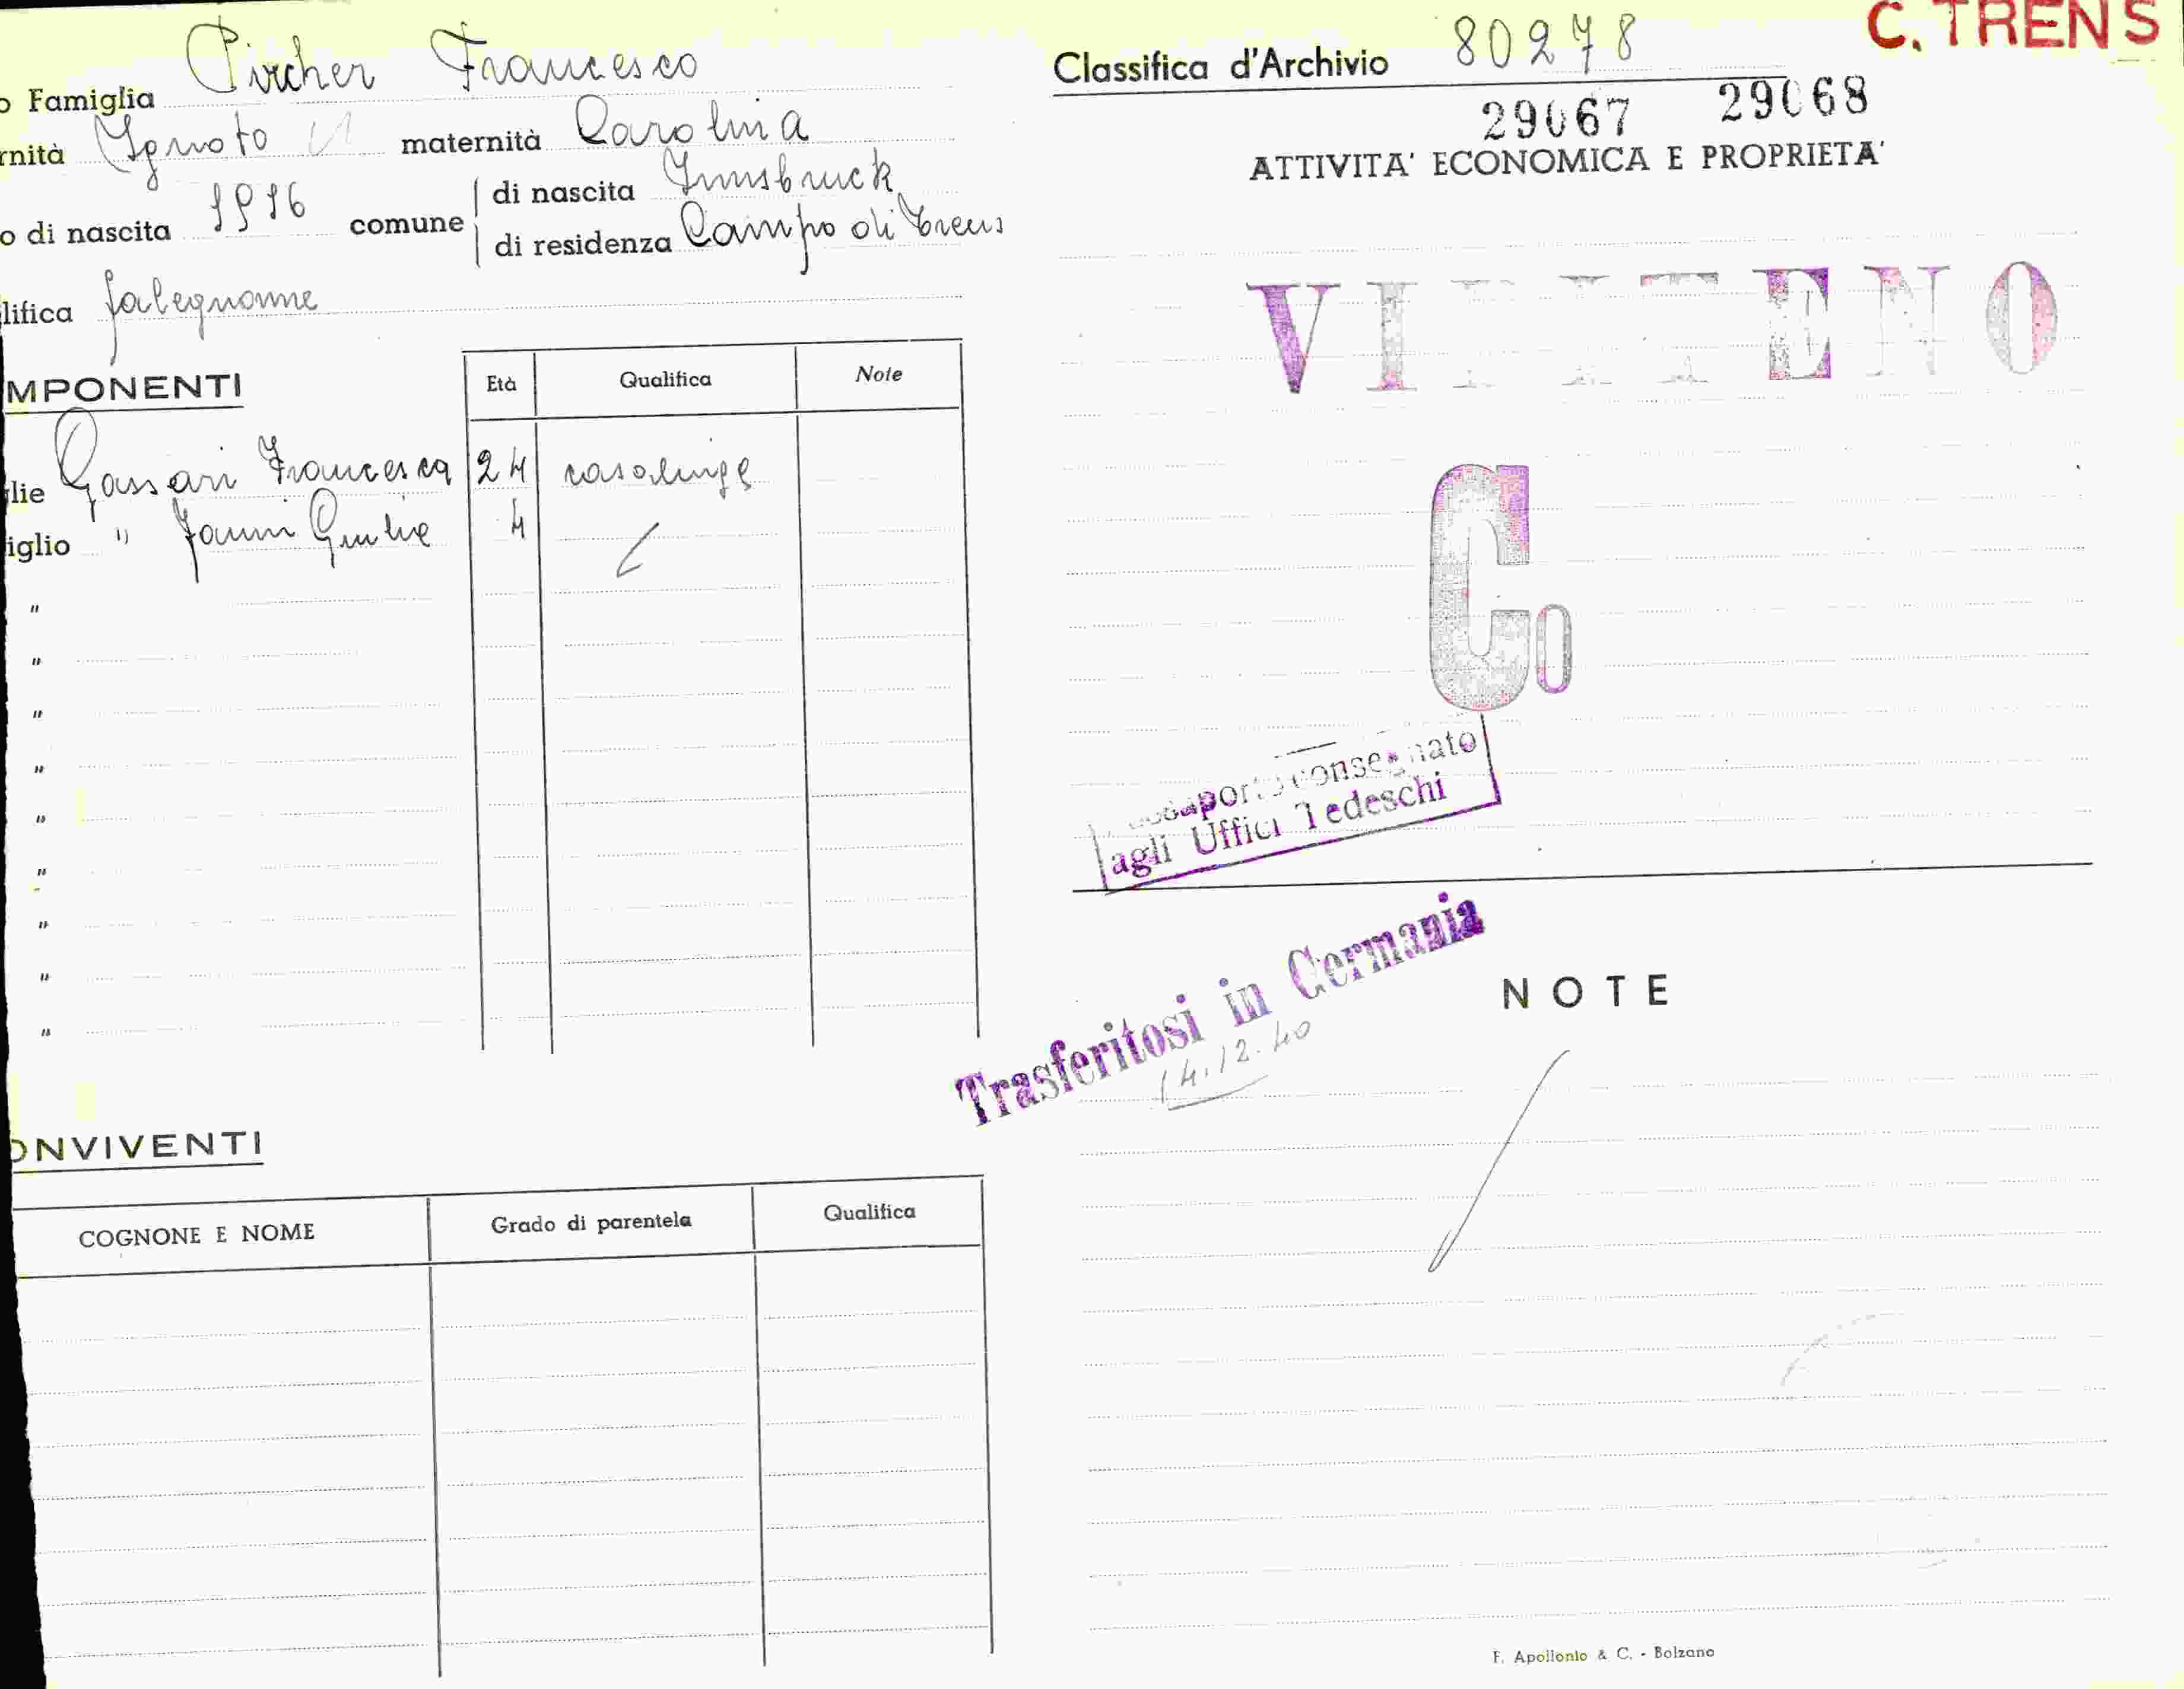 o Famiglia Pircher Francesco
rnità Ignoto maternità Carolina
o di nascita 1916 comune di nascita Innsbruck
di residenza Campo di Trens
lifica falegname
MPONENTI
Età Qualifica Note
lie Gassari Francesca 24 casalinga
iglio " 4
"
"
"
"
"
"
"
"
"
ONVIVENTI
COGNONE E NOME Grado di parentela Qualifica
C. TRENS
Classifica d'Archivio 80278
29067 29068
ATTIVITA' ECONOMICA E PROPRIETA'
VIPITENO
Co
consegnato
agli Uffici Tedeschi
Trasferitosi in Germania
14.12.40
NOTE
F. Apollonio & C. - Bolzano